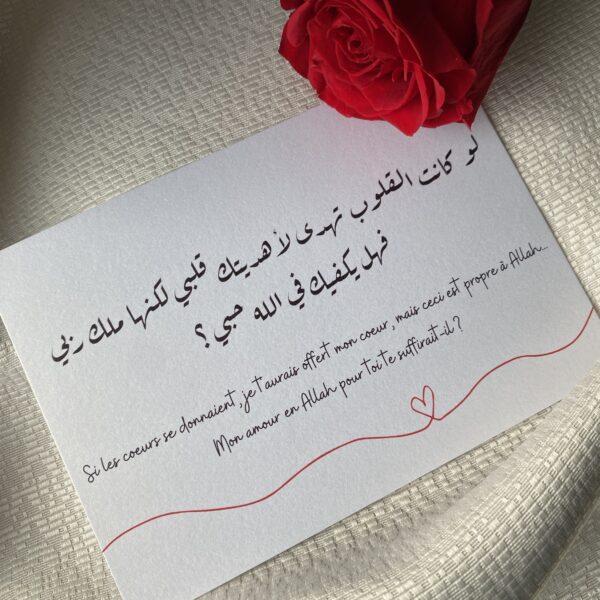 لو كانت القلوب تهدى لأهديتك قلبي لكنها ملك ربي
فهل يكفيك في الله حبي ؟
Si les coeurs se donnaient, je t'aurais offert mon coeur, mais ceci est propre à Allah...
Mon amour en Allah pour toi te suffirait-il ?